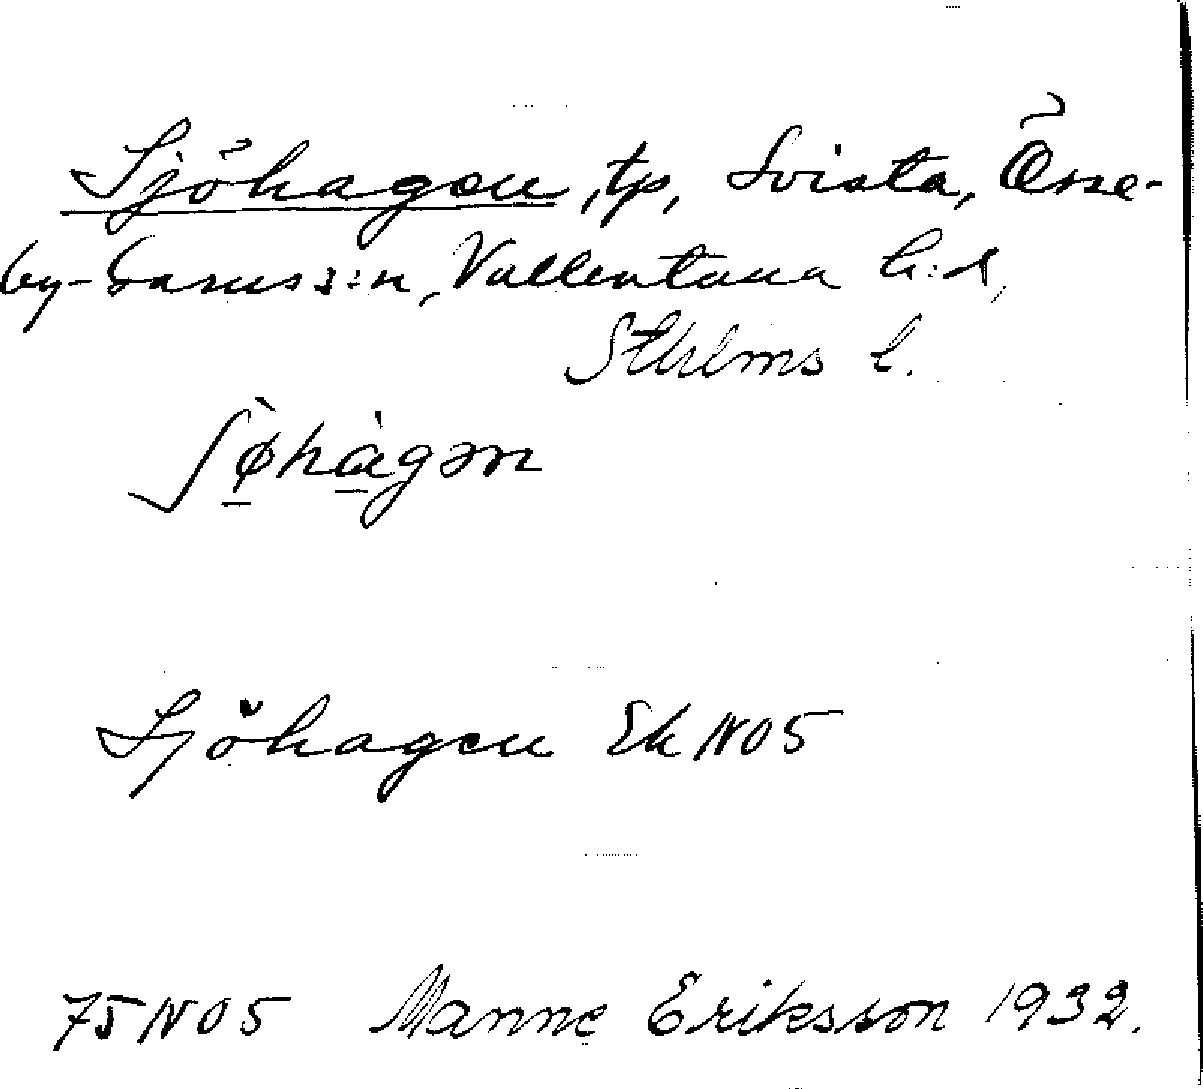 Sjöhagen, tp, Svista, Össe-
by-Garns s:n, Vallentuna h:d,
Sthlms l.
ʃø̠̀hà̠gən
Sjöhagen Ek NO5
75 NO5 Manne Eriksson 1932.